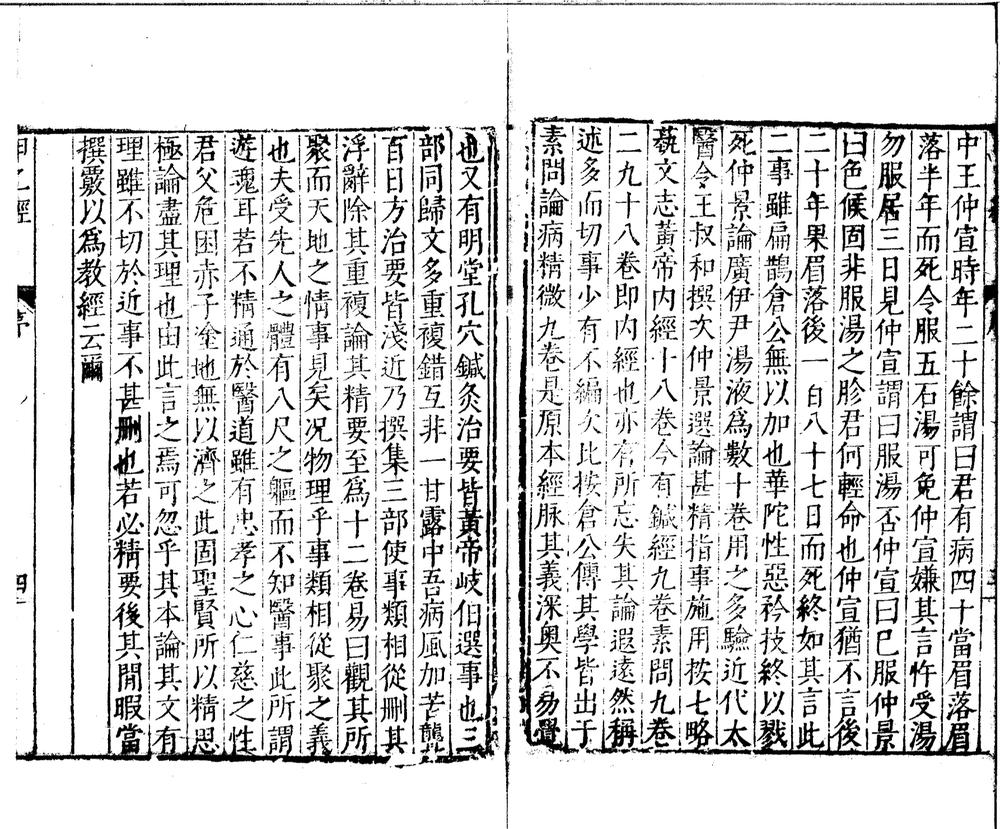 中王仲宣時年二十餘謂曰君有病四十當眉落眉
落半年而死令服五石湯可免仲宣嫌其言忤受湯
勿服居三日見仲宣謂曰服湯否仲宣曰已服仲景
曰色候固非服湯之胗君何輕命也仲宣猶不言後
二十年果眉落後一百八十七日而死終如其言此
二事雖扁鵲倉公無以加也華陀性惡矜技終以戮
死仲景論廣伊尹湯液爲數十卷用之多驗近代太
醫令王叔和撰次仲景選論甚精指事施用按七略
蓺文志黃帝内經十八卷今有鍼經九卷素問九卷
二九十八卷即内經也亦有所忘失其論遐遠然稱
述多而切事少有不編次比按倉公傳其學皆出于
素問論病精微九卷是原本經脉其義深奥不易覺
也又有明堂孔穴鍼灸治要皆黃帝岐伯選事也三
部同歸文多重複錯互非一甘露中吾病風加苦聾
百日方治要皆淺近乃撰集三部使事類相從刪其
浮辭除其重複論其精要至爲十二卷易曰觀其所
聚而天地之情事見矣況物理乎事類相從聚之義
也夫受先人之體有八尺之軀而不知醫事此所謂
遊魂耳若不精通於醫道雖有忠孝之心仁慈之性
君父危困赤子塗地無以濟之此固聖賢所以精思
極論盡其理也由此言之焉可忽乎其本論其文有
理雖不切於近事不甚刪也若必精要後其閒暇當
撰覈以爲教經云爾
甲乙經
序
四